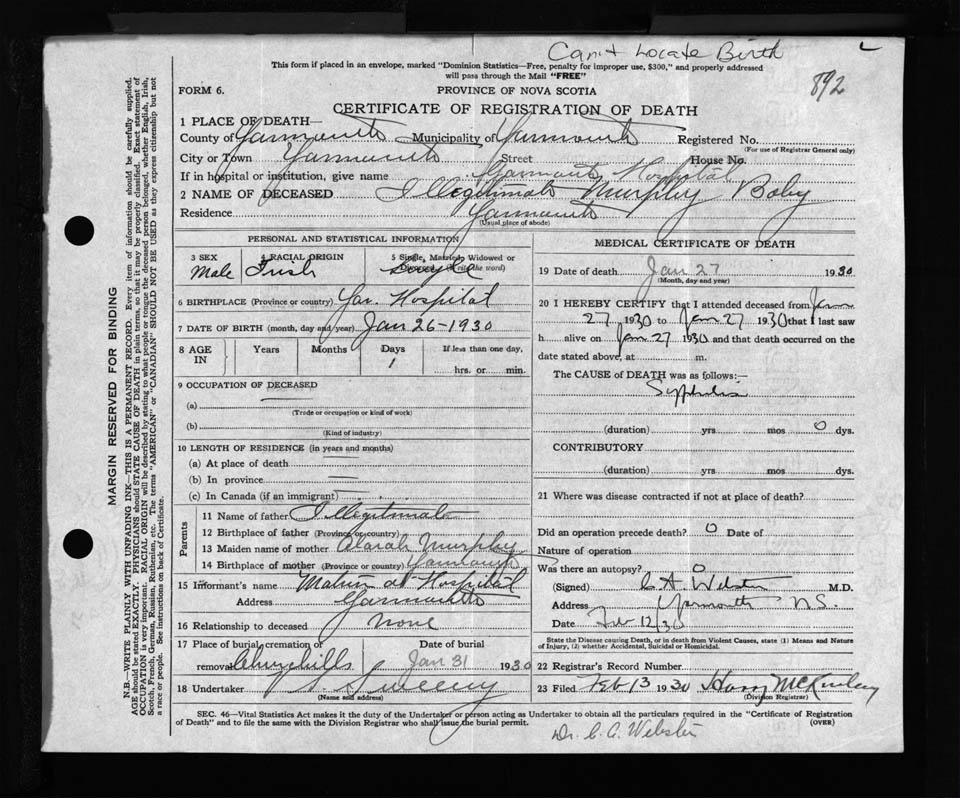 Can't Locate Birth
This form if placed in an envelope, marked "Dominion Statistics—Free, penalty for improper use, $300," and properly addressed
will pass through the Mail "FREE"
892
FORM 6.
PROVINCE OF NOVA SCOTIA
CERTIFICATE OF REGISTRATION OF DEATH
1 PLACE OF DEATH—
County of Yarmouth Municipality of Yarmouth Registered No.
(For use of Registrar General only)
City or Town Yarmouth Street House No.
If in hospital or institution, give name Yarmouth Hospital
2 NAME OF DECEASED Illegitimate Murphy Baby
Residence Yarmouth
(Usual place of abode)
PERSONAL AND STATISTICAL INFORMATION
3 SEX 4 RACIAL ORIGIN 5 Single, Married, Widowed or
Divorced (write the word)
Male Irish Single
6 BIRTHPLACE (Province or country) Yar. Hospital
7 DATE OF BIRTH (month, day and year) Jan 26-1930
8 AGE IN Years Months Days If less than one day,
1 hrs. or min.
9 OCCUPATION OF DECEASED
(a)
(Trade or occupation or kind of work)
(b)
(Kind of industry)
10 LENGTH OF RESIDENCE (in years and months)
(a) At place of death
(b) In province
(c) In Canada (if an immigrant)
Parents
11 Name of father Illegitimate
12 Birthplace of father (Province or country)
13 Maiden name of mother Murphy
14 Birthplace of mother (Province or country) Yarmouth
15 Informant's name Matron at Hospital
Address Yarmouth
16 Relationship to deceased None
17 Place of burial, cremation or Date of burial
removal Churchills Jan 31 1930
18 Undertaker V S Sweeny
(Name and address)
MEDICAL CERTIFICATE OF DEATH
19 Date of death Jan 27 1930
(Month, day and year)
20 I HEREBY CERTIFY that I attended deceased from Jan
27 1930 to Jan 27 1930 that I last saw
h alive on Jan 27 1930 and that death occurred on the
date stated above, at m.
The CAUSE of DEATH was as follows:—
Syphilis
(duration) yrs mos 0 dys.
CONTRIBUTORY
(duration) yrs mos dys.
21 Where was disease contracted if not at place of death?
Did an operation precede death? 0 Date of
Nature of operation
Was there an autopsy? 0
(Signed) C A Webster M.D.
Address Yarmouth N.S.
Date Feb 12 30
State the Disease causing Death, or in death from Violent Causes, state (1) Means and Nature
of Injury, (2) whether Accidental, Suicidal or Homicidal.
22 Registrar's Record Number
23 Filed Feb 13 1930 Harry McKinley
(Division Registrar)
SEC. 46—Vital Statistics Act makes it the duty of the Undertaker or person acting as Undertaker to obtain all the particulars required in the "Certificate of Registration
of Death" and to file the same with the Division Registrar who shall issue the burial permit.
(OVER)
Dr. C. A. Webster
MARGIN RESERVED FOR BINDING
N.B.—WRITE PLAINLY WITH UNFADING INK—THIS IS A PERMANENT RECORD. Every item of information should be carefully supplied.
AGE should be stated EXACTLY. PHYSICIANS should STATE CAUSE OF DEATH in plain terms, so that it may be properly classified. Exact statement of
OCCUPATION is very important. RACIAL ORIGIN will be described by stating to what people or tongue the deceased person belonged, whether English, Irish,
Scotch, French, German, Russian, Ruthenian, etc. The terms "AMERICAN" or "CANADIAN" SHOULD NOT BE USED as they express citizenship but not
a race or people. See instructions on back of Certificate.